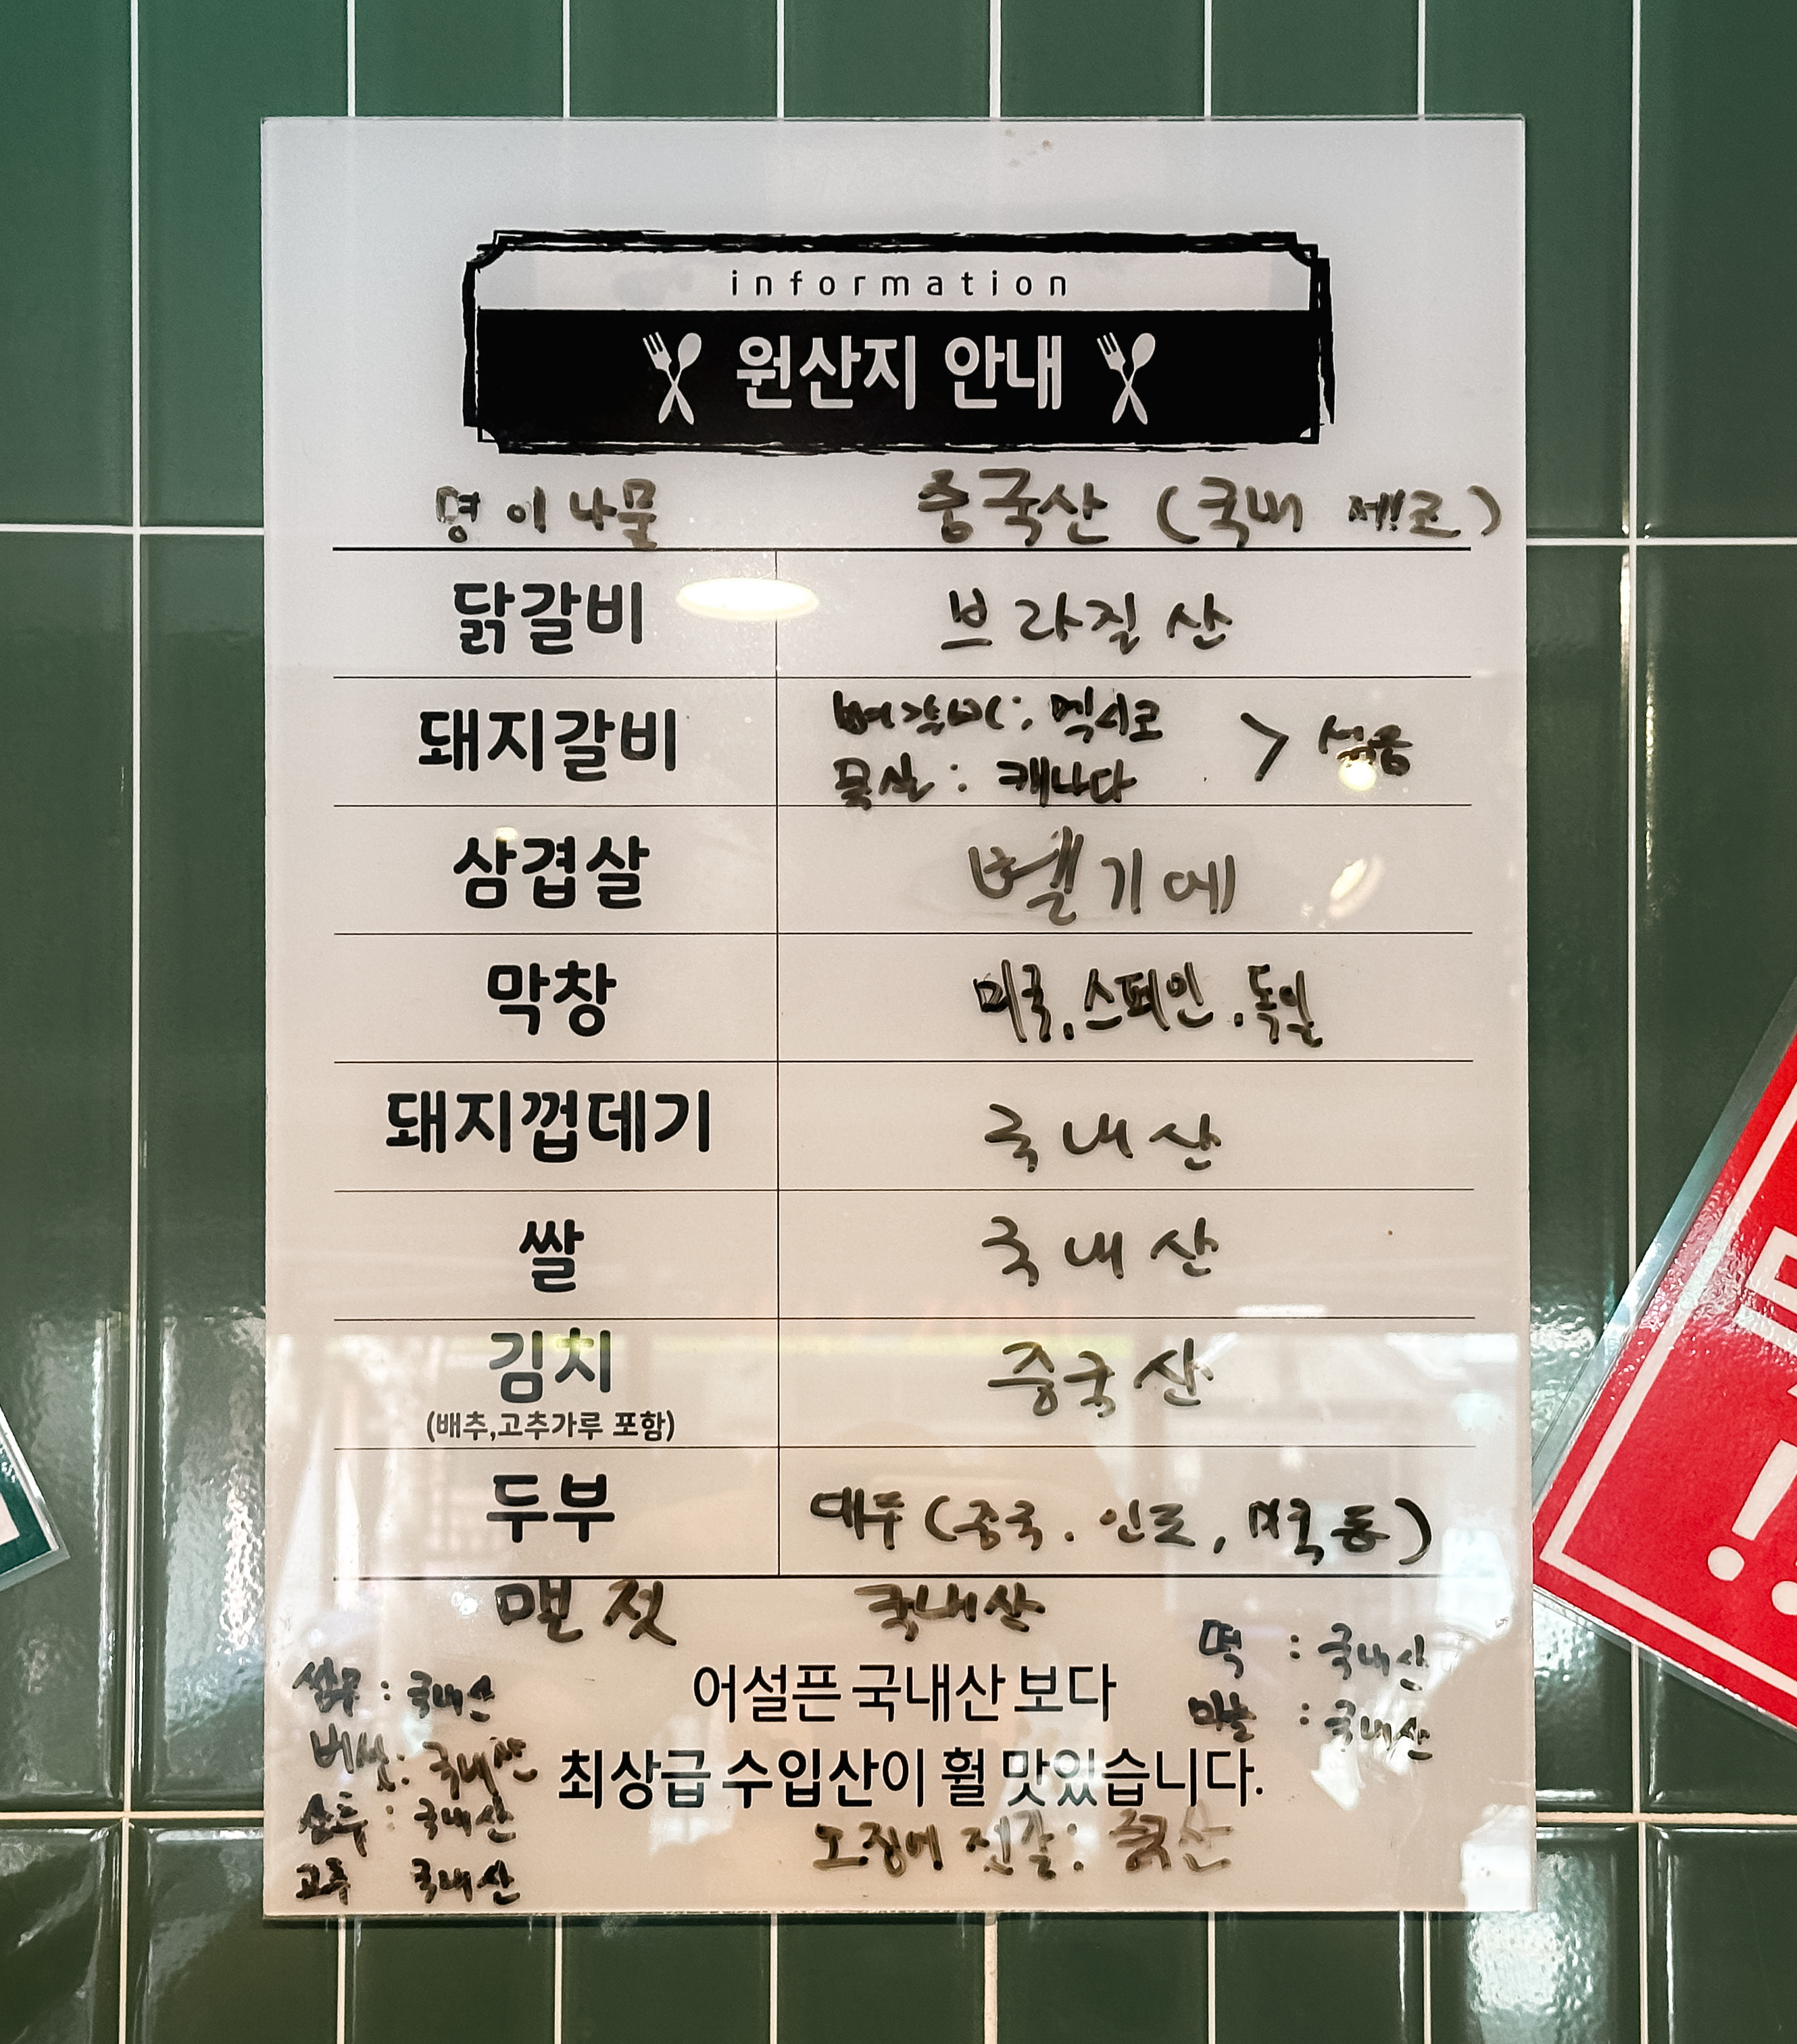 information
원산지 안내
명이나물 중국산 (국내 제조)
닭갈비 브라질산
돼지갈비 뼈갈비: 멕시코
목살: 캐나다 > 섞음
삼겹살 벨기에
막창 미국, 스페인, 독일
돼지껍데기 국내산
쌀 국내산
김치 중국산
(배추,고추가루 포함)
두부 대두 (중국. 인도, 미국 등)
멜젓 국내산
떡 : 국내산
쌈무 : 국내산
어설픈 국내산 보다
마늘 : 국내산
버섯: 국내산
최상급 수입산이 훨 맛있습니다.
상추 : 국내산
오징어 젓갈: 중국산
고추 국내산